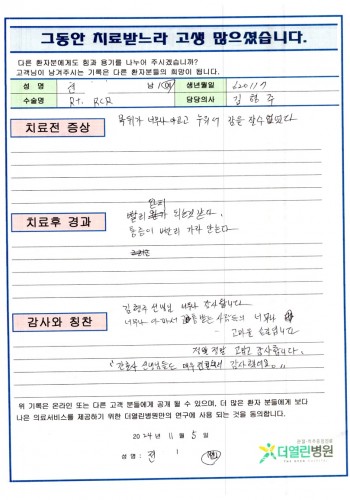 그동안 치료받느라 고생 많으셨습니다.
다른 환자분에게도 힘과 용기를 나누어 주시겠습니까?
고객님이 남겨주시는 기록은 다른 환자분들의 희망이 됩니다.
성 명 전 남/여 생년월일 620117
수술명 Rt. RCR 담당의사 김형주
치료전 증상
너무나 아프고 누워 잠을 잘수 없었다
치료후 경과
빨리
통증이 빨리 가라 안는다
감사와 칭찬
김형주 선생님 너무나 감사합니다
너무나 아파서 받는 사람들의 너무나
고마운 손길입니다
정말 정말 고맙고 감사합니다.
간호사 선생님들도 매우 감사했어요
위 기록은 온라인 또는 다른 고객 분들에게 공개 될 수 있으며, 더 많은 환자 분들에게 보다
나은 의료서비스를 제공하기 위한 더열린병원만의 연구에 사용 되는 것을 동의합니다.
2024년 11월 5일
성명 : 전
관절·척추중점진료
더열린병원